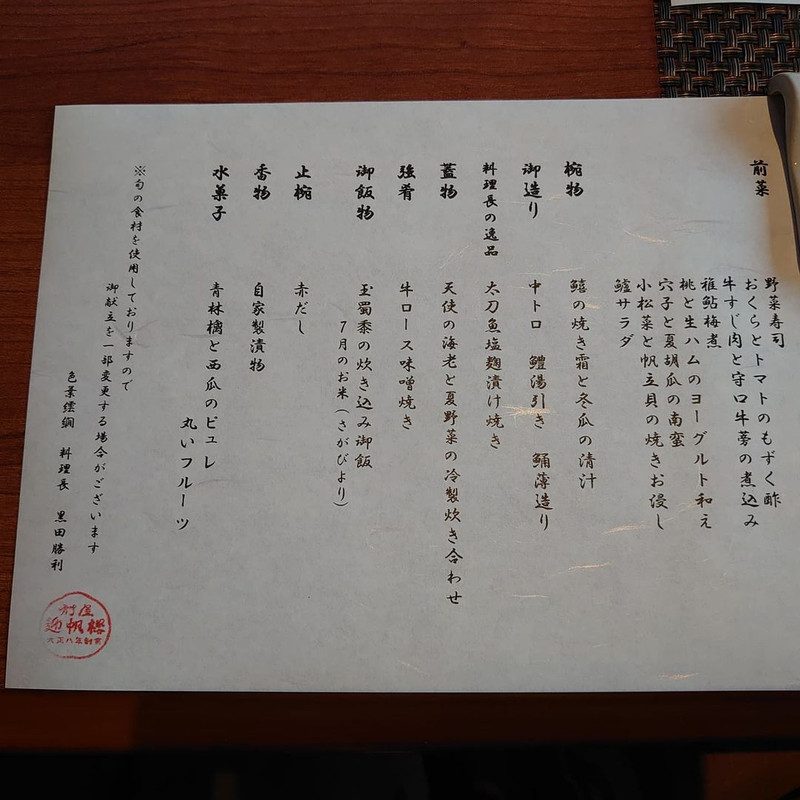 前菜
野菜寿司
おくらとトマトのもずく酢
牛すじ肉と守口牛蒡の煮込み
稚鮎梅煮
桃と生ハムのヨーグルト和え
穴子と夏胡瓜の南蛮
小松菜と帆立貝の焼きお浸し
鱧サラダ
椀物
鱚の焼き霜と冬瓜の清汁
御造り
中トロ 鱧湯引き 鯒薄造り
料理長の逸品
太刀魚塩麹漬け焼き
蓋物
天使の海老と夏野菜の冷製炊き合わせ
強肴
牛ロース味噌焼き
御飯物
玉蜀黍の炊き込み御飯
7月のお米(さがびより)
止椀
赤だし
香物
自家製漬物
水菓子
青林檎と西瓜のピュレ
丸いフルーツ
※旬の食材を使用しておりますので
御献立を一部変更する場合がございます
色葉 料理長 黒田勝利
迎帆楼